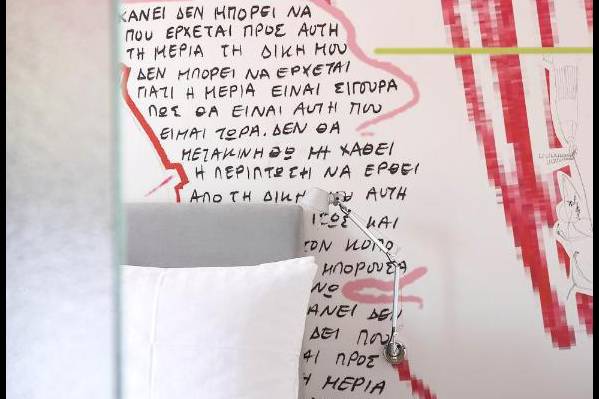 ΚΑΝΕΙ ΔΕΝ ΜΠΟΡΕΙ ΝΑ
ΠΟΥ ΕΡΧΕΤΑΙ ΠΡΟΣ ΑΥΤΗ
ΤΗ ΜΕΡΙΑ ΤΗ ΔΙΚΗ ΜΟΥ
ΔΕΝ ΜΠΟΡΕΙ ΝΑ ΕΡΧΕΤΑΙ
ΓΙΑΤΙ Η ΜΕΡΙΑ ΕΙΝΑΙ ΣΙΓΟΥΡΑ
ΠΩΣ ΘΑ ΕΙΝΑΙ ΑΥΤΗ ΠΟΥ
ΕΙΜΑΙ ΤΩΡΑ. ΔΕΝ ΘΑ
ΜΕΤΑΚΙΝΗΘΩ ΜΗ ΧΑΘΕΙ
Η ΠΕΡΙΠΤΩΣΗ ΝΑ ΕΡΘΕΙ
ΑΠΟ ΤΗ ΔΙΚΗ ΑΥΤΗ
ΙΣΩΣ ΚΑΙ
ΤΟΝ ΚΟΠΟ
ΜΠΟΡΟΥΣΑ
ΝΩ
ΚΑΝΕΙ ΔΕΝ
ΔΕΙ ΠΟΥ
ΑΙ ΠΡΟΣ
Η ΜΕΡΙΑ